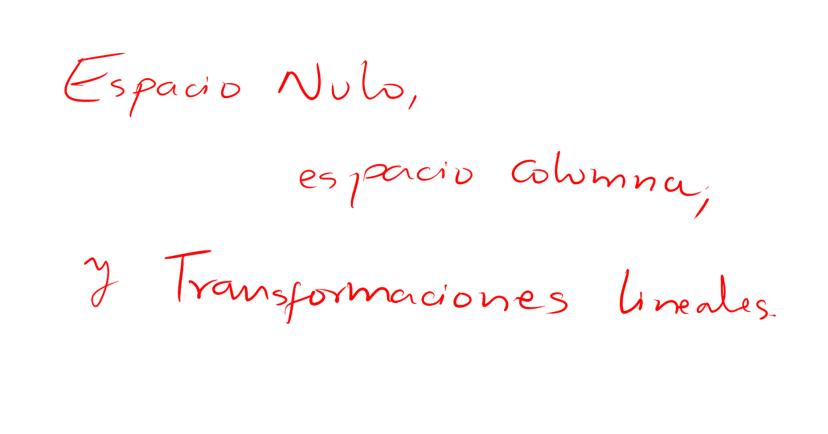 Espacio Nulo,
espacio columna,
y Transformaciones lineales.